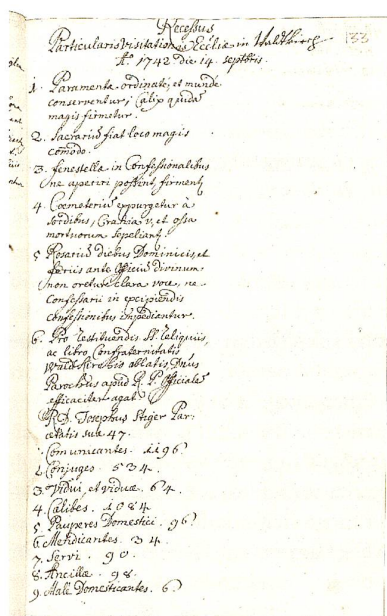 133
Recessus
Particularis Visitationis Eccliæ in Waldkirch
Aō 1742 die 14. septbris.
1. Paramenta ordinate, et munde
conserventur; Calix quidā
magis firmetur.
2. Sacrariū fiat loco magis
cōmodo.
3. fenestellæ in Confessionalibus
ne aperiri possint, firment
4. Coemeteriū expurgetur à
sordibus, Crania v. et ossa
mortuorum sepeliant
5 Rosariū diebus Dominicis, et
feriis ante Officiū divinum
non oretur clara voce, ne
Confessarii in excipiendis
confessionibus impediantur.
6. Pro restituendis SS. reliquiis,
ac libro Confraternitatis
oblatis, Dnūs
Parochus apud R. P. Officialē
efficaciter agat
R. D. Josephus Steger Par:
ætatis suæ 47.
1. Comunicantes. 1196.
2. Conjuges. 534.
3. Vidui, et viduæ. 64.
4. Cælibes. 1084.
5. Pauperes Domestici. 96
6. Mendicantes. 34.
7. Servi. 90.
8. Ancillæ. 98.
9. Malè Domesticantes. 6.